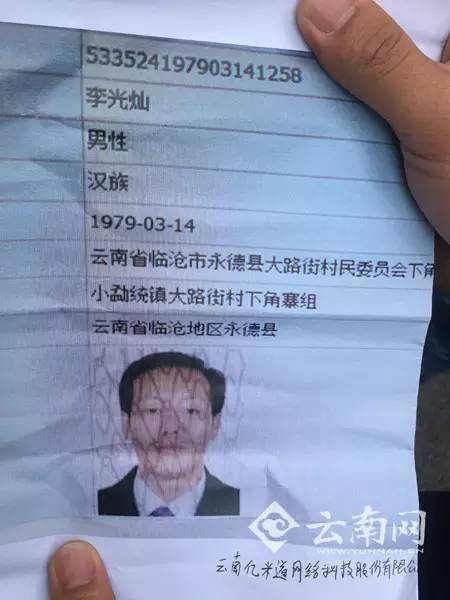 533524197903141258
李光灿
男性
汉族
1979-03-14
云南省临沧市永德县大路街村民委员会下角
小勐统镇大路街村下角寨组
云南省临沧地区永德县
云南网
WWW.YUNNAN.CN
云南亿米道网络科技股份有限公